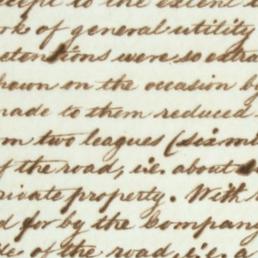 cept to the extent
rk of general utility
etentions were so extra
hown on the occasion by
made to them reduced
om two leagues (six mi
of the road, i.e. about
rivate property. With
d for by the Company
de of the road, i.e. a